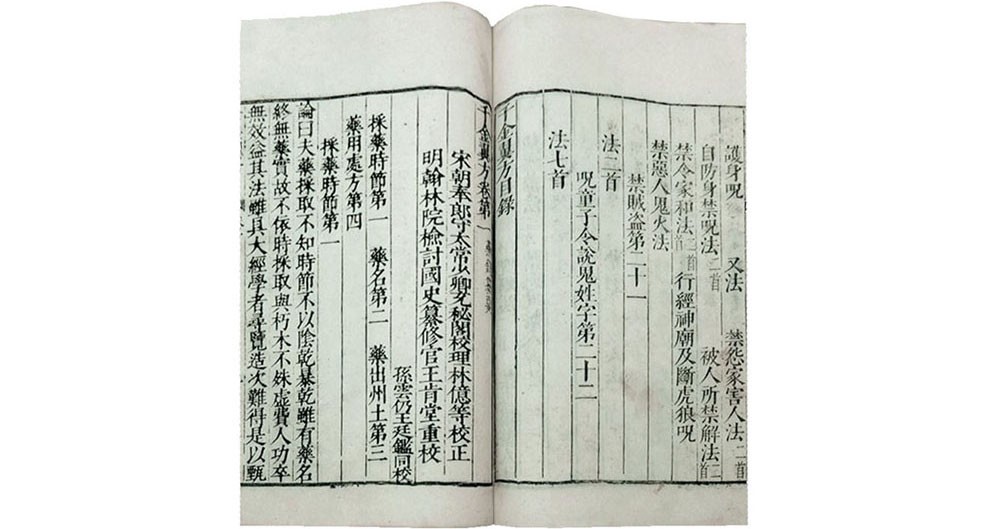 護身呪 又法 禁怨家害人法二首
自防身禁呪法二首 被人所禁解法二首
禁令家和法二首 行經神廟及斷虎狼呪
禁惡人鬼火法
禁賊盜第二十一
法二首
呪童子令說鬼姓字第二十二
法七首
千金翼方目錄
千金翼方卷第一
宋朝奉郎守太常少卿充秘閣校理林億等校正
明翰林院檢討國史纂修官王肯堂重校
孫雲仍王廷鑑同校
採藥時節第一 藥名第二 藥出州土第三
藥用處方第四
採藥時節第一
論曰夫藥採取不知時節不以陰乾暴乾雖有藥名
終無藥實故不依時採取與朽木不殊虛費人功卒
無效益其法雖具大經學者尋覽造次難得是以甄